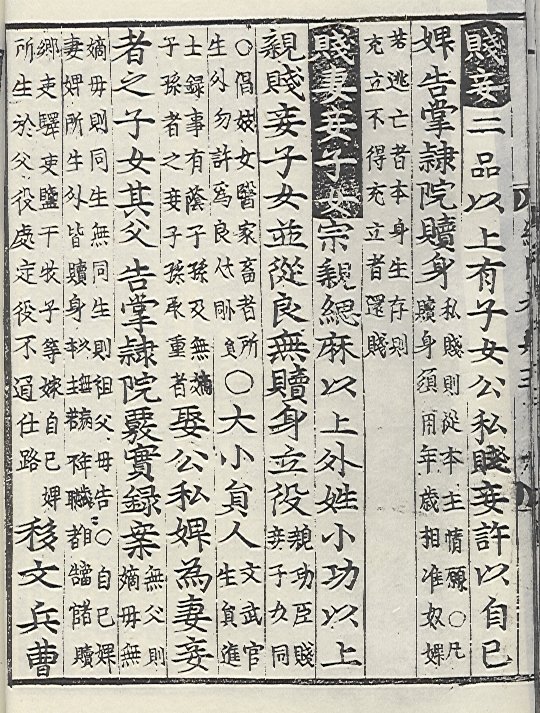 賤妾二品以上有子女公私賤妾許以自己
婢告掌隷院贖身
私賤則從本主情願○凡
贖身須用年歲相准奴婢
若逃亡者本身生存則
充立不得充立者還賤
賤妻妾子女宗親緦麻以上外姓小功以上
親賤妾子女並從良無贖身立役
親功臣賤
妾子女同
○倡妓女醫家畜者所
生外勿許爲良
○大小員人
文武官
生員進
士錄事有蔭子孫及無嫡
子孫者之妾子孫承重者
娶公私婢為妻妾
者之子女其父告掌隷院覈實錄案
無父則
嫡母無
嫡母則同生無同生則祖父母告○自己婢
妻婢所生外皆贖身
鄕吏驛吏鹽干牧子等嫁自己婢
所生於父役處定役不通仕路
移文兵曹